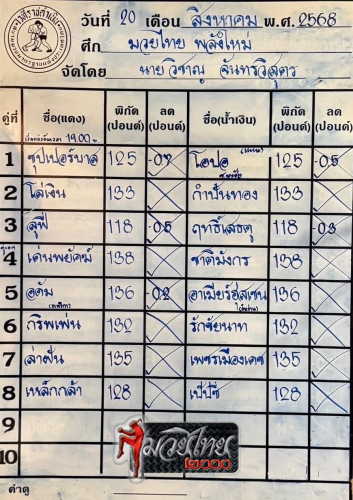 วันที่ 20 เดือน สิงหาคม พ.ศ. 2568
ศึก มวยไทย พลังใหม่
จัดโดย นายวิชาญ จันทรวิสุตร
คู่ที่ ชื่อ(แดง) พิกัด (ปอนด์) ลด (ปอนด์) ชื่อ(น้ำเงิน) พิกัด (ปอนด์) ลด (ปอนด์)
1 ซุปเปอร์บาส 125 โอปอ 125
2 ไล่เงิน 133 กำปั่นทอง 133
3 ลุฟี่ 118 ฤทธิ์เลธตุ 118
4 เด่นพยัคฆ์ 138 ชาติมังกร 138
5 อดัม 136 อาเมียร์ฮุสเซน 136
6 กริพเพ่น 132 รักชัยนาท 132
7 ล่าฝัน 135 เพชรเมืองเดช 135
8 เหล็กกล้า 128 เป๊ปซี่ 128
9
10
ค่าดู
มวยไทย
๒๐๐๐